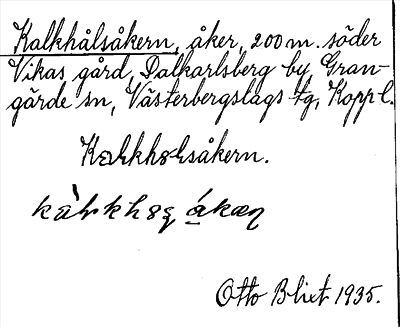 Kalkhålsåkern, åker, 200 m. söder
Vikas gård, Dalkarlsberg by, Gran-
gärde sn, Västerbergslags tg, Kopp l.
Kalkholsåkern.
Otto Blixt 1935.